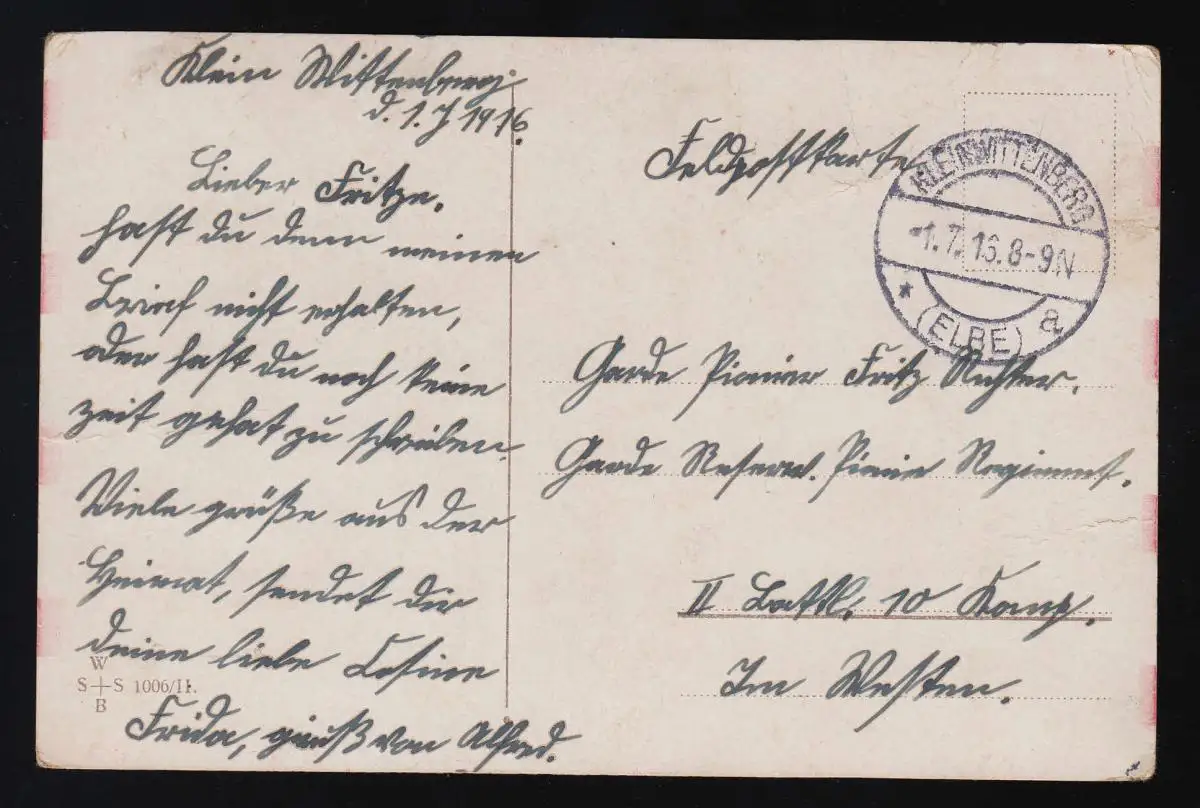 Klein Wittenberg
d. 1. 7 1916.
Lieber Fritze.
hast du denn meinen
Brief nicht erhalten,
oder hast du noch keine
zeit gehat zu schreiben.
Viele grüße aus der
Heimat, sendet dir
deine liebe Cosine
Frida, gruß von Alfred.
W
S+S 1006/II.
B
Feldpostkarte
KLEINWITTENBERG
-1.7.16.8-9N
* (ELBE) a
Garde Pionier Fritz Richter.
Garde Reserv. Pionier Regiment.
II Battl. 10 Komp.
Im Westen.